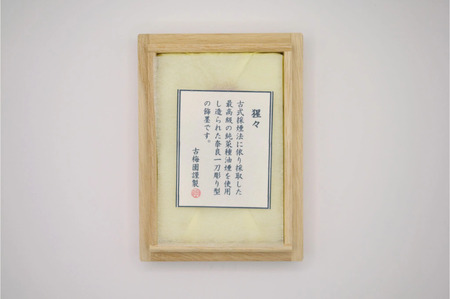 猩々
古式採煙法に依り採取した
最高級の純菜種油煙を使用
し造られた奈良一刀彫り型
の飾墨です。
古梅園謹製